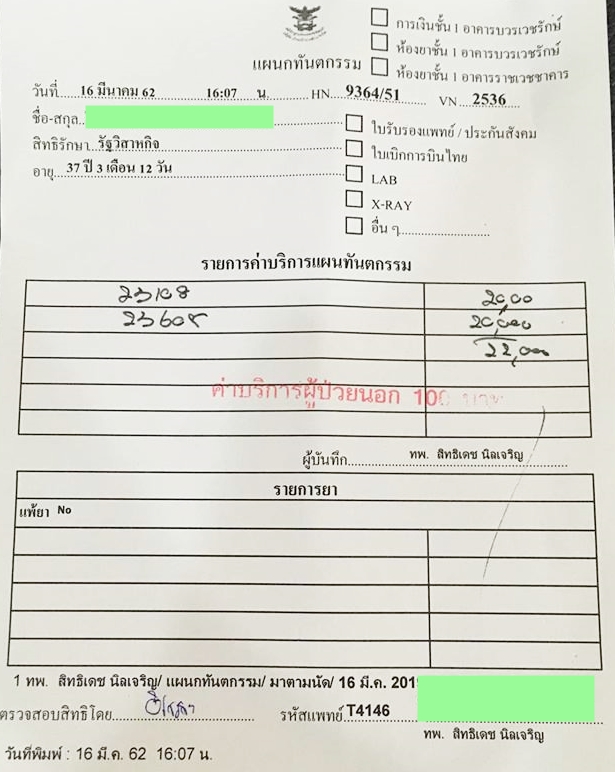 การเงินชั้น 1 อาคารบวรเวชรักษ์
ห้องยาชั้น 1 อาคารบวรเวชรักษ์
แผนกทันตกรรม
ห้องยาชั้น 1 อาคารราชเวชชาคาร
วันที่.....16 มีนาคม 62 16:07 น. HN...9364/51 VN...2536
ชื่อ-สกุล
สิทธิรักษา...รัฐวิสาหกิจ
ใบรับรองแพทย์ / ประกันสังคม
อายุ...37 ปี 3 เดือน 12 วัน
ใบเบิกการบินไทย
LAB
X-RAY
อื่น ๆ
รายการค่าบริการแผนทันตกรรม
23108 2000
20,000
22,000
ค่าบริการผู้ป่วยนอก 100 บาท
ผู้บันทึก..........ทพ. สิทธิเดช นิลเจริญ
รายการยา
แพ้ยา No
1 ทพ. สิทธิเดช นิลเจริญ/ แผนกทันตกรรม/ มาตามนัด/ 16 มี.ค. 2019
ตรวจสอบสิทธิโดย..........รหัสแพทย์ T4146
ทพ. สิทธิเดช นิลเจริญ
วันที่พิมพ์ : 16 มี.ค. 62 16:07 น.